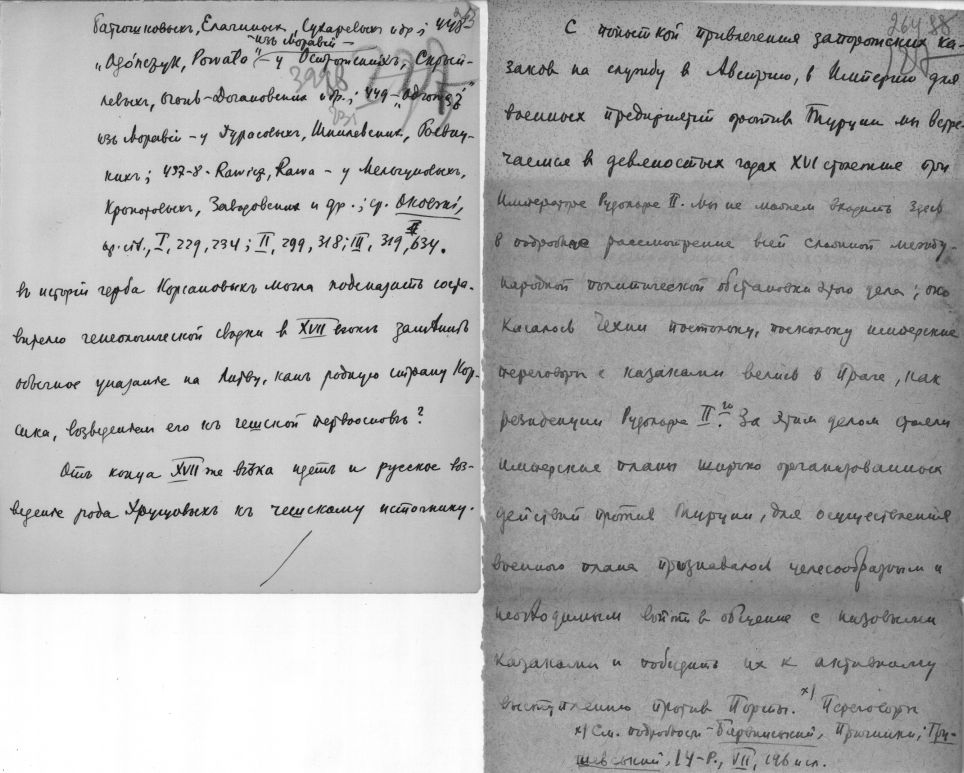 Батюшковыхъ, Елагиныхъ, Сухаревыхъ и др.; 448
—изъ Моравіи—
„Odończyk, Powała" – у Острожскихъ,
левыхъ, Огонь-Догановскихъ и др.; 449 –
изъ Моравіи – у Турсовыхъ, Шпилевскихъ,
кихъ; 497-8. Rawicz, Rawa – у Мельгуновыхъ,
Кропотовыхъ, Заводовскихъ и др.; ср. Окольскі,
ор. cit., I, 229, 234; II, 299, 318; III, 319, 634.
въ исторіи герба Корсаковыхъ могла подсказать соста-
вителю генеологической сводки в XVII вѣкѣ замѣнить
обычное указаніе на Литву, какъ родную страну Кор-
сака, возведеніем его къ чешской первоосновѣ?
Отъ конца XVII же вѣка идетъ и русское воз-
веденіе рода Хрущовыхъ къ чешскому источнику.
264 88
С попыткой привлечения запорожских ка-
заков на службу в Австрию, в Империю для
военных предприятий против Турции мы встре-
чаемся в девяностых годах XVI столетия при
Императоре Рудольфе II. Мы не можем входить здесь
в подробное рассмотрение всей сложной между-
народной политической обстановки этого дела; оно
касалось Чехии постольку, поскольку имперские
переговоры с казаками велись в Праге, как
резиденции Рудольфа II го. За этим делом стояли
имперские планы широко организованных
действий против Турции, для осуществления
военного плана признавалось целесообразным и
необходимым войти в общение с низовыми
казаками и побудить их к активному
выступлению против Порты. х) Переговоры
х) См. подробности – Барвинський, Причинки; Гру-
шевський, I У-Р., VII, 196 и сл.